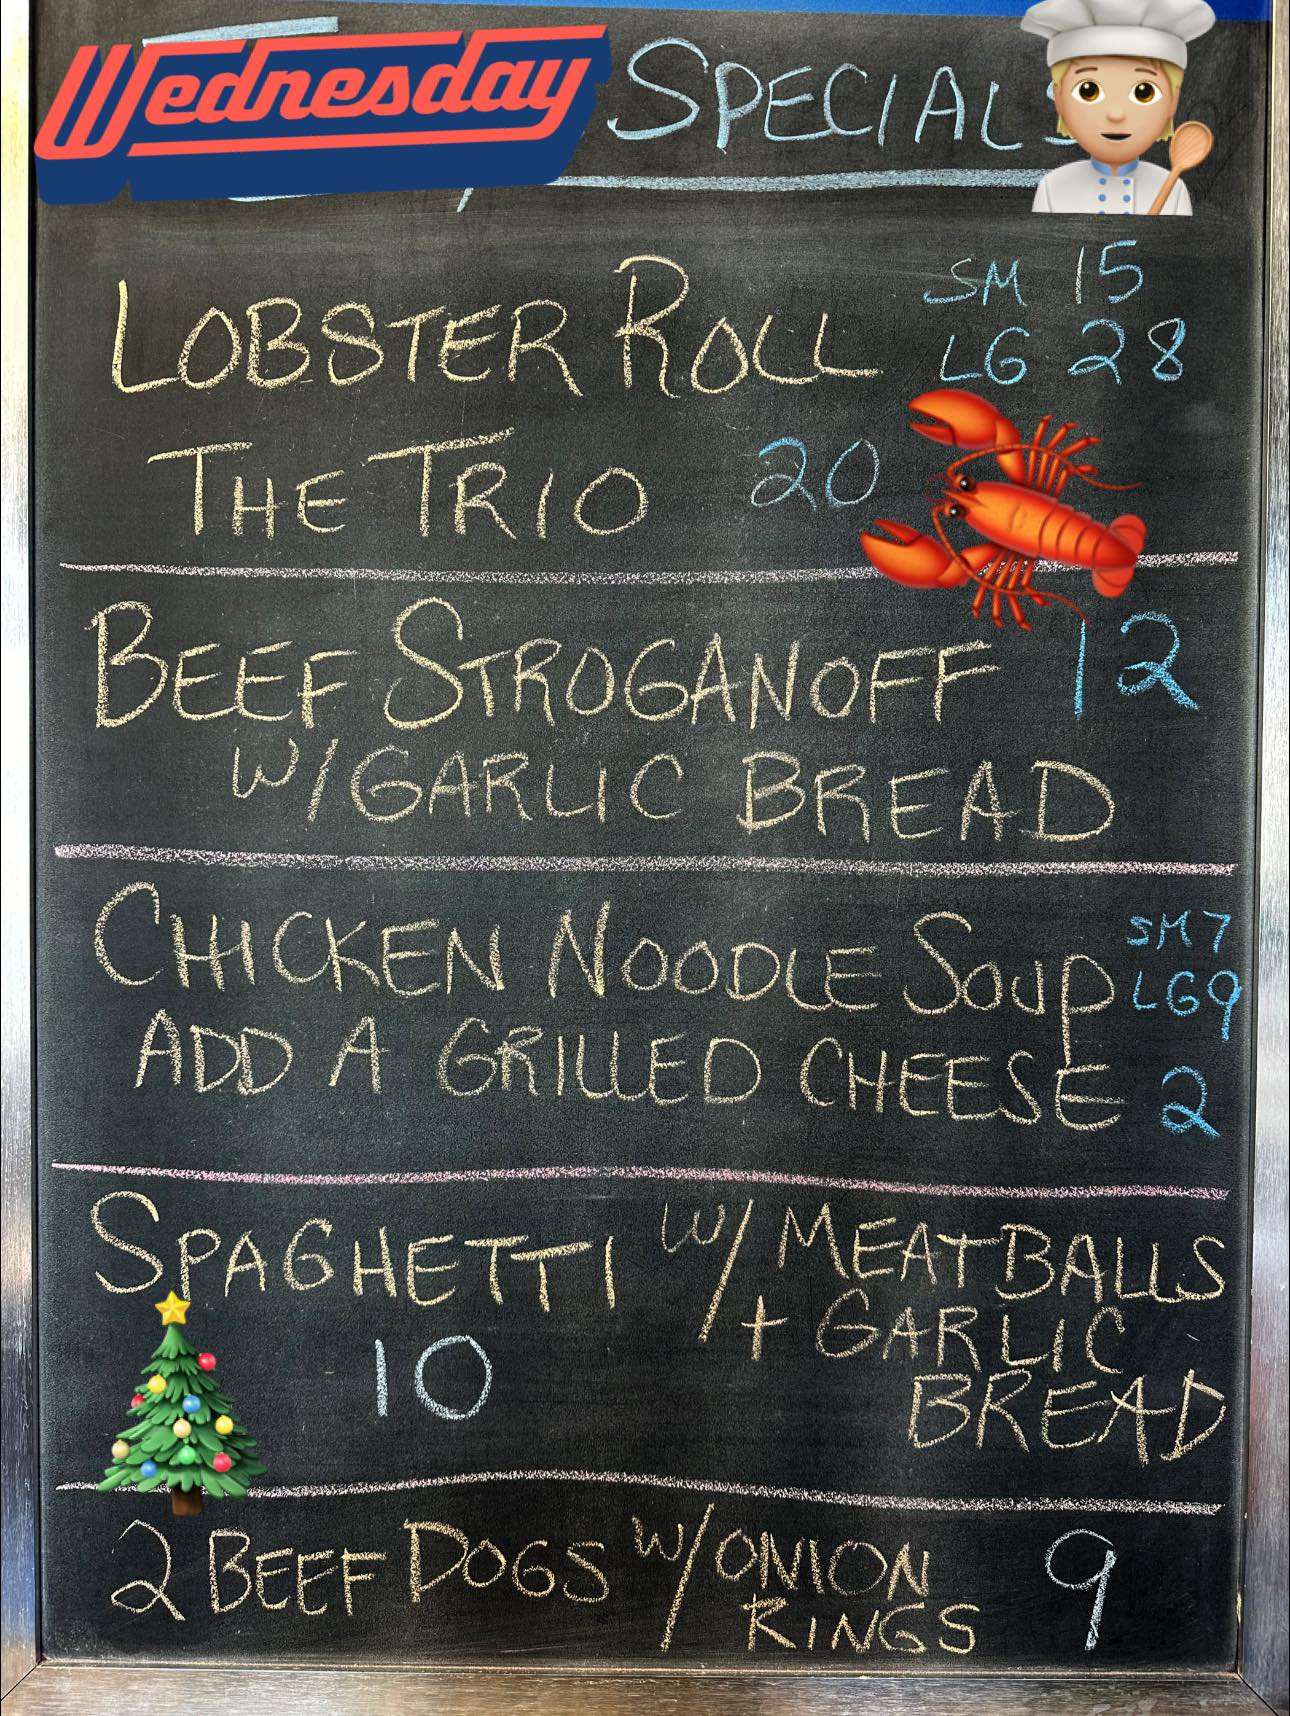 Wednesday SPECIALS
LOBSTER ROLL SM 15
LG 28
THE TRIO 20
BEEF STROGANOFF 12
W/GARLIC BREAD
CHICKEN NOODLE SOUP SM 7
LG 9
ADD A GRILLED CHEESE 2
SPAGHETTI W/ MEATBALLS
+ GARLIC
10 BREAD
2 BEEF DOGS W/ ONION 9
RINGS